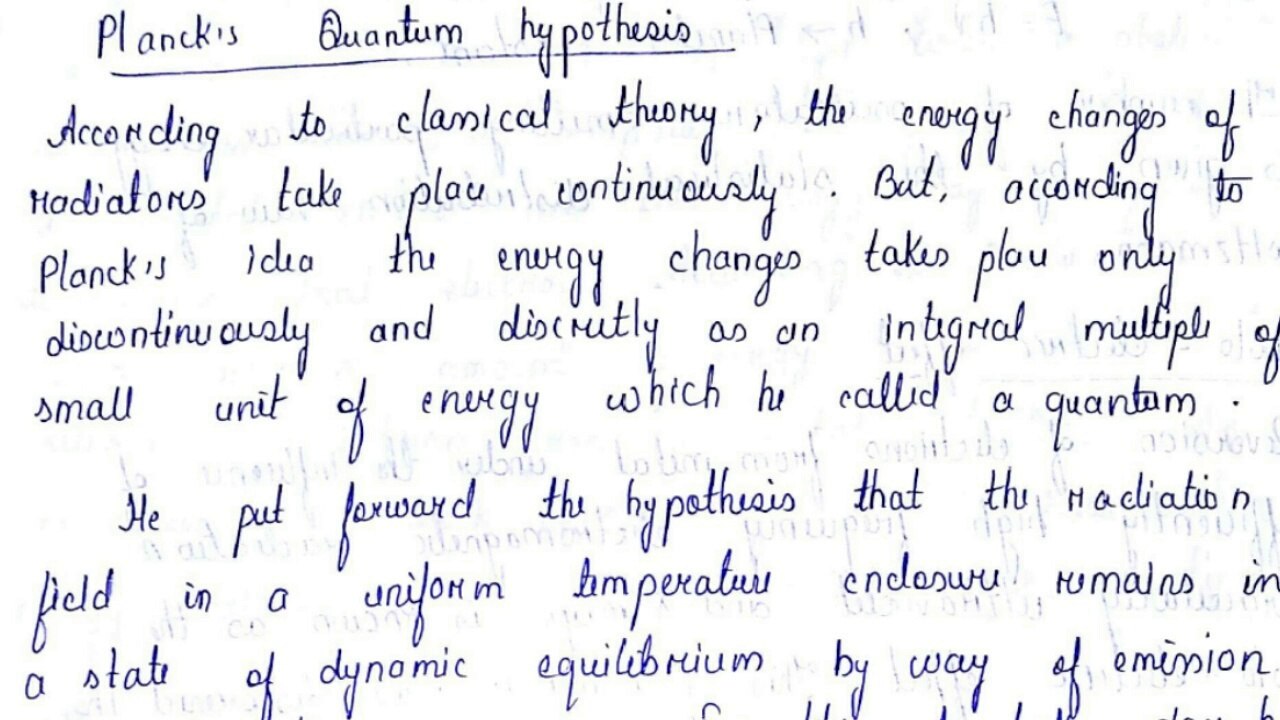 Planck's Quantum hypothesis
According to classical theory, the energy changes of
radiators take place continuously. But, according to
Planck's idea the energy changes takes place only
discontinuously and discretly as an integral multiple of
small unit of energy which he called a quantum.
He put forward the hypothesis that the radiation
field in a uniform temperature enclosure remains in
a state of dynamic equilibrium by way of emission